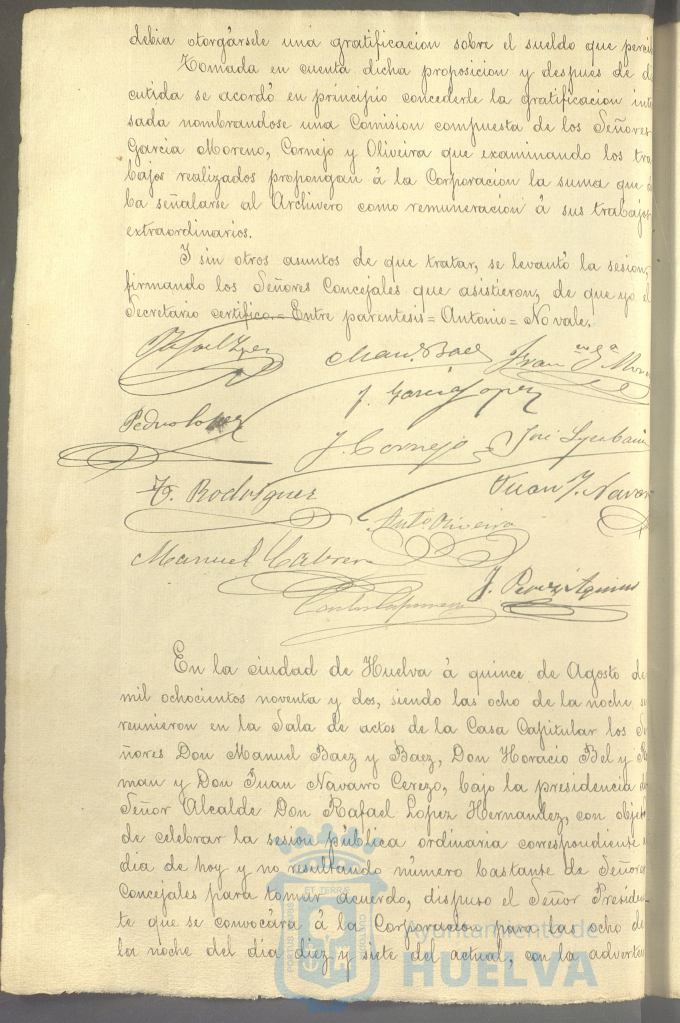 debia otorgársele una gratificacion sobre el sueldo que perci
Tomada en cuenta dicha proposicion y despues de d
cutida se acordó en principio concederle la gratificacion inte
sada nombrandose una Comision compuesta de los Señores
Garcia Moreno, Cornejo y Oliveira que examinando los tra
bajos realizados propongan á la Corporacion la suma que
ba señalarse al Archivero como remuneracion á sus trabajos
extraordinarios.
Y sin otros asuntos de que tratar, se levantó la sesion,
firmando los Señores Concejales que asistieron, de que yo el
Secretario certifico.= Entre parentesis = Antonio = No vale.
Rafael Lopez Man. Baez Fran en Ga Mor
J. Garcia Lopez
Pedro Lopez
J. Cornejo José
F. Rodriguez Juan J. Navar
Anto. Oliveira
Manuel Cabrera
J. Perez
En la ciudad de Huelva á quince de Agosto de
mil ochocientos noventa y dos, siendo las ocho de la noche se
reunieron en la Sala de actos de la Casa Capitular los Se
ñores Don Manuel Baez y Baez, Don Horacio Bel y R
man y Don Juan Navarro Cerezo, bajo la presidencia d
Señor Alcalde Don Rafael Lopez Hernandez, con objet
de celebrar la sesion pública ordinaria correspondiente
dia de hoy y no resultando número bastante de Señores
Concejales para tomar acuerdo, dispuso el Señor Presiden-
te que se convocára á la Corporacion para las ocho de
la noche del dia diez y siete del actual, con la adverten
PORTUS MARIS ET TERRÆ CUSTODIA
Ayuntamiento de
HUELVA